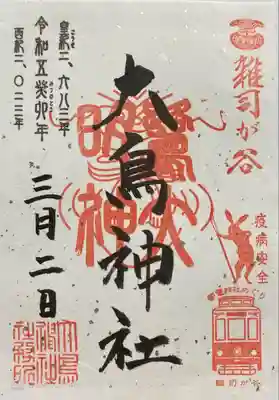 雑司が谷
疫病安全
大鳥神社
皇紀二、六八三年
令和五癸卯年
西暦二、〇二三年
三月二日
大鳥
神社
社務所